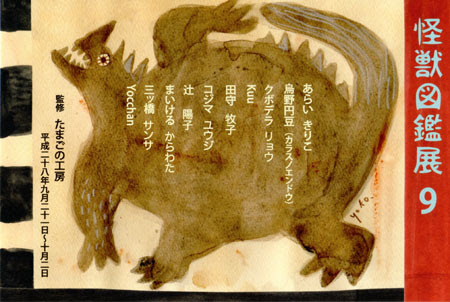 怪獣図鑑展 9
あらい きりこ
烏野円豆(カラスノエンドウ)
クボデラ リョウ
Keu
田守 牧子
コシマ ユウジ
辻 陽子
まいける からわた
三ッ橋 サンサ
Yocchan
監修 たまごの工房
平成二十八年九月二十一日〜十月二日
yoko.